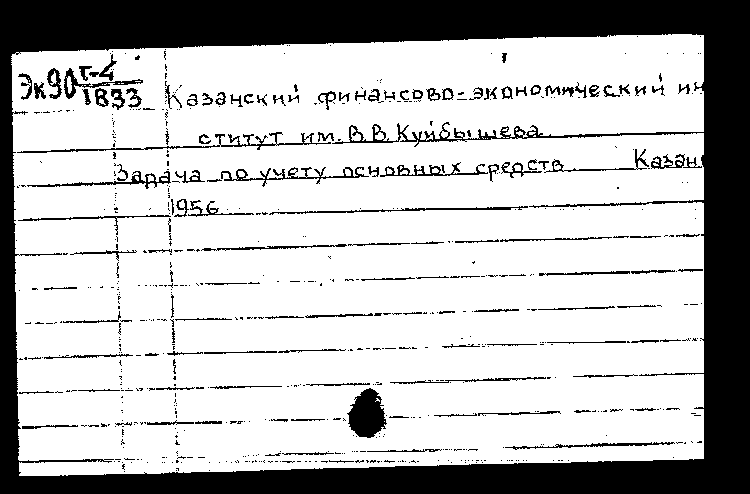 Эк90 Т-4
1833
Казанский финансово-экономический ин
ститут им. В.В. Куйбышева
Задача по учету основных средств Казан
1956